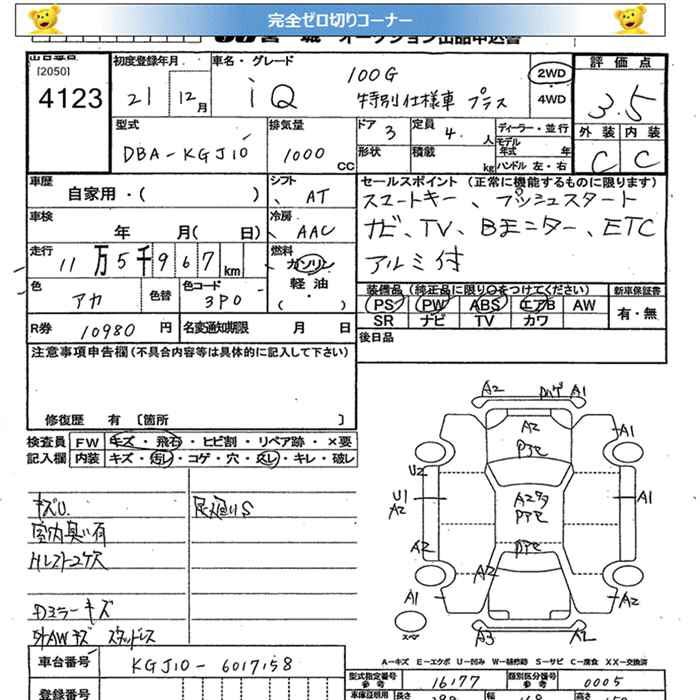 完全ゼロ切りコーナー
オークション出品申込書
[2050]
4123
初度登録年月
21
12月
車名・グレード
iQ
100G
特別仕様車 プラス
2WD
4WD
評価点
3.5
外装 内装
C C
型式
DBA-KGJ10
排気量
1000 CC
ドア 3
定員 4. 人
形状
積載 kg
ディーラー・並行
モデル年式 年
ハンドル 左・右
車歴
自家用・( )
シフト
AT
車検
年 月( 日)
冷房
AAC
走行
11万5千967km
燃料
ガソリン
軽油
( ・ )
色
アカ
色替
色コード
3P0
R券 10980 円
名変通知期限 月 日
セールスポイント (正常に機能するものに限ります)
スマートキー、プッシュスタート
ナビ、TV、Bモニター、ETC
アルミ付
装備品(純正品に限り○をつけてください)
PS PW ABS エアB AW
SR ナビ TV カワ
新車保証書
有・無
後日品
注意事項申告欄(不具合内容等は具体的に記入して下さい)
修復歴 有 [箇所 ]
検査員 FW キズ・飛石・ヒビ割・リペア跡・×要
記入欄 内装 キズ・汚レ・コゲ・穴・スレ・キレ・破レ
キズU.
室内臭い有
Hレストコゲス
Dミラーキズ
外AWキズ スタッドレス
A2
A1
A2
A1
U2
U1
A2
A1
A2
A2
A1
A2
スペア
A3
A2
A-キズ E-エクボ U-凹み W-補修跡 S-サビ C-腐食 XX-交換済
車台番号
KGJ10-6017158
登録番号
型式指定番号
参考
16177
類別区分番号
参考
0005
車庫証明用
長さ
幅
高さ